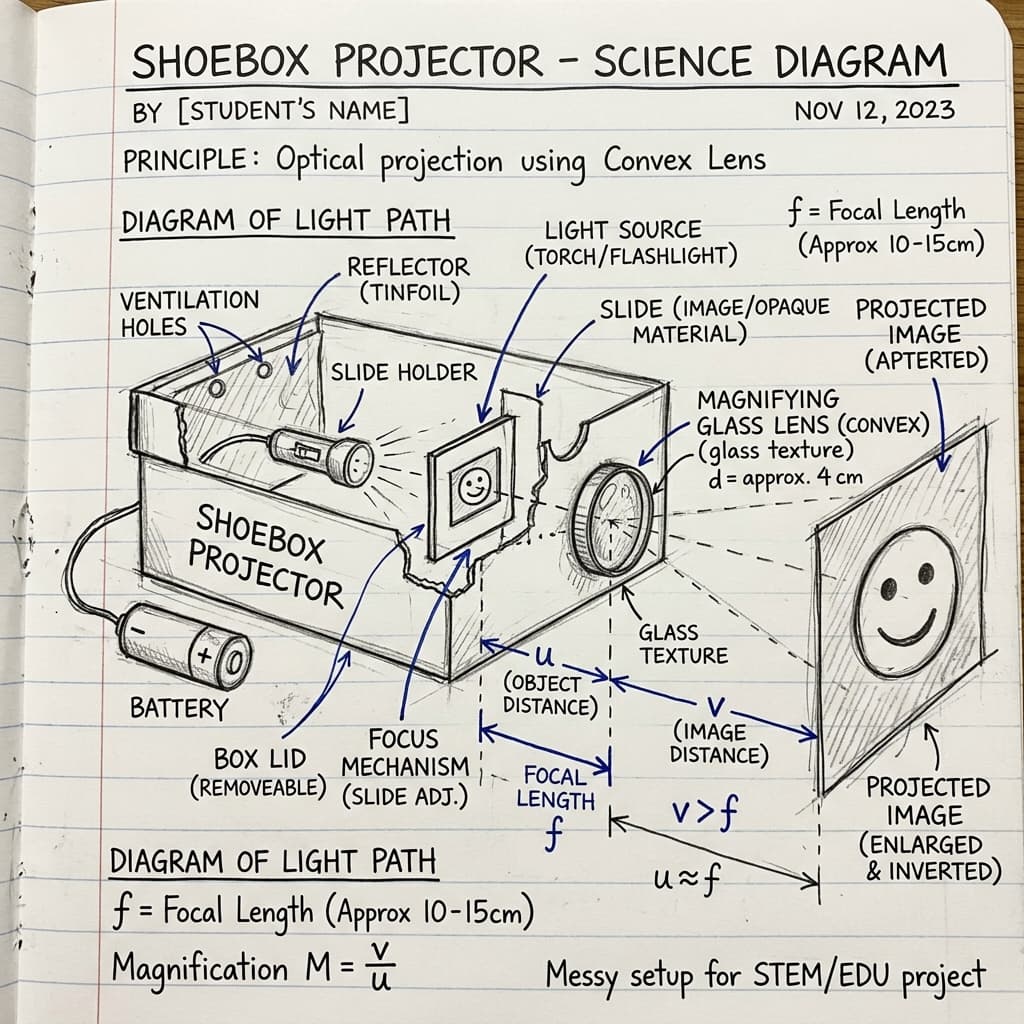 SHOEBOX PROJECTOR – SCIENCE DIAGRAM
BY [STUDENT'S NAME]
NOV 12, 2023
PRINCIPLE: Optical projection using Convex Lens
DIAGRAM OF LIGHT PATH
f = Focal Length
(Approx 10-15cm)
LIGHT SOURCE
(TORCH/FLASHLIGHT)
REFLECTOR
(TINFOIL)
VENTILATION
HOLES
SLIDE (IMAGE/OPAQUE
MATERIAL)
PROJECTED
IMAGE
(APTERTED)
SLIDE HOLDER
MAGNIFYING
GLASS LENS (CONVEX)
(glass texture)
d = approx. 4 cm
SHOEBOX
PROJECTOR
- +
BATTERY
GLASS
TEXTURE
u
(OBJECT
DISTANCE)
v
(IMAGE
DISTANCE)
BOX LID
(REMOVEABLE)
FOCUS
MECHANISM
(SLIDE ADJ.)
FOCAL
LENGTH
f
v > f
u ≈ f
PROJECTED
IMAGE
(ENLARGED
& INVERTED)
DIAGRAM OF LIGHT PATH
f = Focal Length (Approx 10-15cm)
Magnification M = v/u
Messy setup for STEM/EDU project